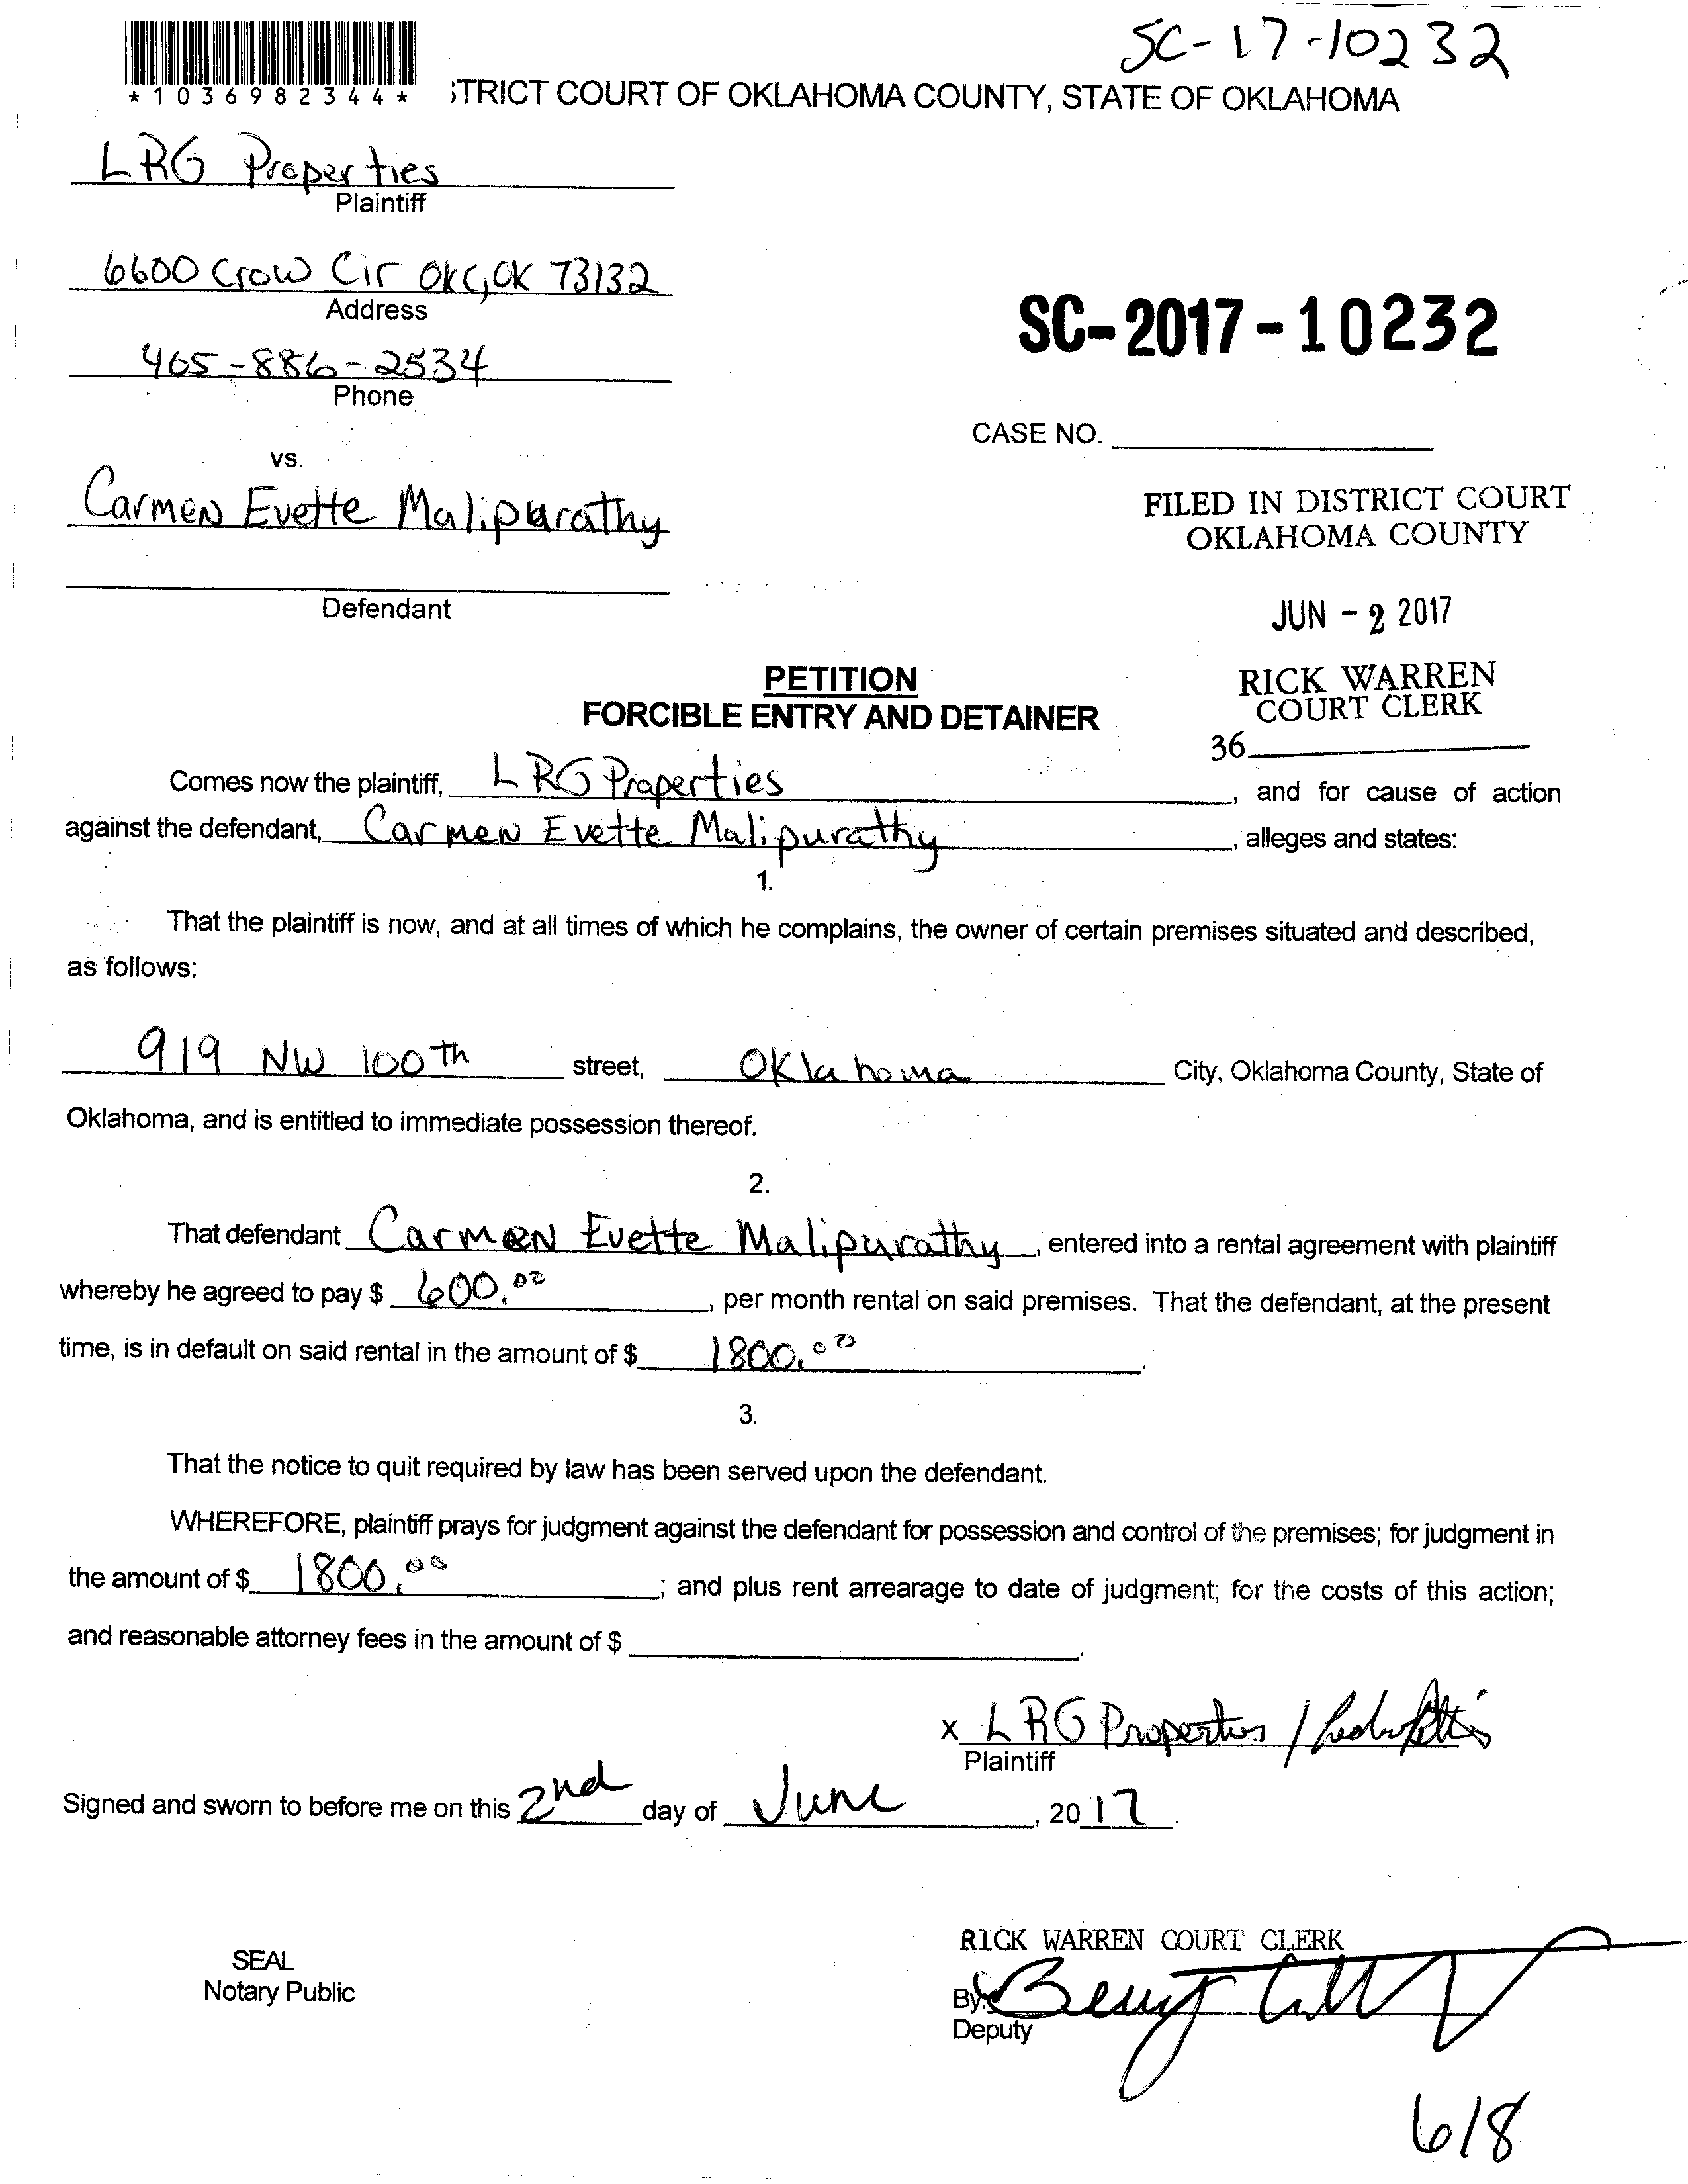 SC-17-10232
*1036982344*
STRICT COURT OF OKLAHOMA COUNTY, STATE OF OKLAHOMA
LRG Properties
Plaintiff
6600 Crow Cir OKC, OK 73132
Address
405-886-2534
Phone
SC-2017-10232
CASE NO.
vs.
Carmen Evette Malipurathy
Defendant
FILED IN DISTRICT COURT
OKLAHOMA COUNTY
JUN - 2 2017
RICK WARREN
COURT CLERK
36
PETITION
FORCIBLE ENTRY AND DETAINER
Comes now the plaintiff, LRG Properties, and for cause of action
against the defendant, Carmen Evette Malipurathy, alleges and states:
1.
That the plaintiff is now, and at all times of which he complains, the owner of certain premises situated and described,
as follows:
919 NW 100th street, Oklahoma City, Oklahoma County, State of
Oklahoma, and is entitled to immediate possession thereof.
2.
That defendant Carmen Evette Malipurathy, entered into a rental agreement with plaintiff
whereby he agreed to pay $ 600.00, per month rental on said premises. That the defendant, at the present
time, is in default on said rental in the amount of $ 1800.00.
3.
That the notice to quit required by law has been served upon the defendant.
WHEREFORE, plaintiff prays for judgment against the defendant for possession and control of the premises; for judgment in
the amount of $ 1800.00; and plus rent arrearage to date of judgment; for the costs of this action;
and reasonable attorney fees in the amount of $ .
x LRG Properties /
Plaintiff
Signed and sworn to before me on this 2nd day of June, 2017.
SEAL
Notary Public
RICK WARREN COURT CLERK
By:
Deputy
6/8